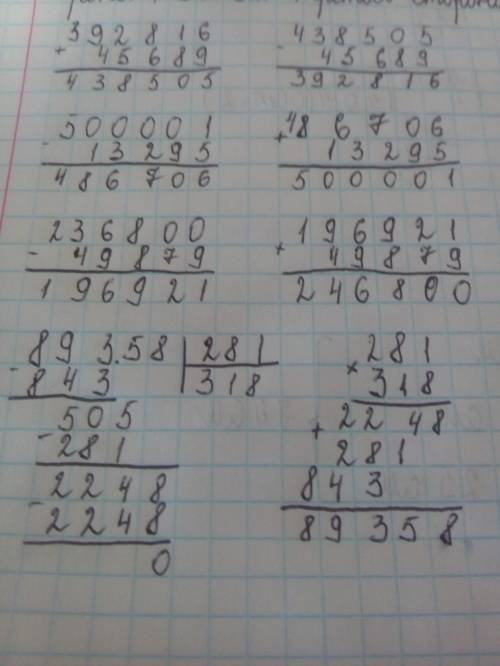 392816
+ 45689
438505
438505
- 45689
392816
500001
- 13295
486706
486706
+ 13295
500001
236800
- 49879
196921
196921
+ 49879
246800
893.58 | 281
- 843 | 318
505
- 281
2248
- 2248
0
281
× 318
+ 2248
281
843
89358